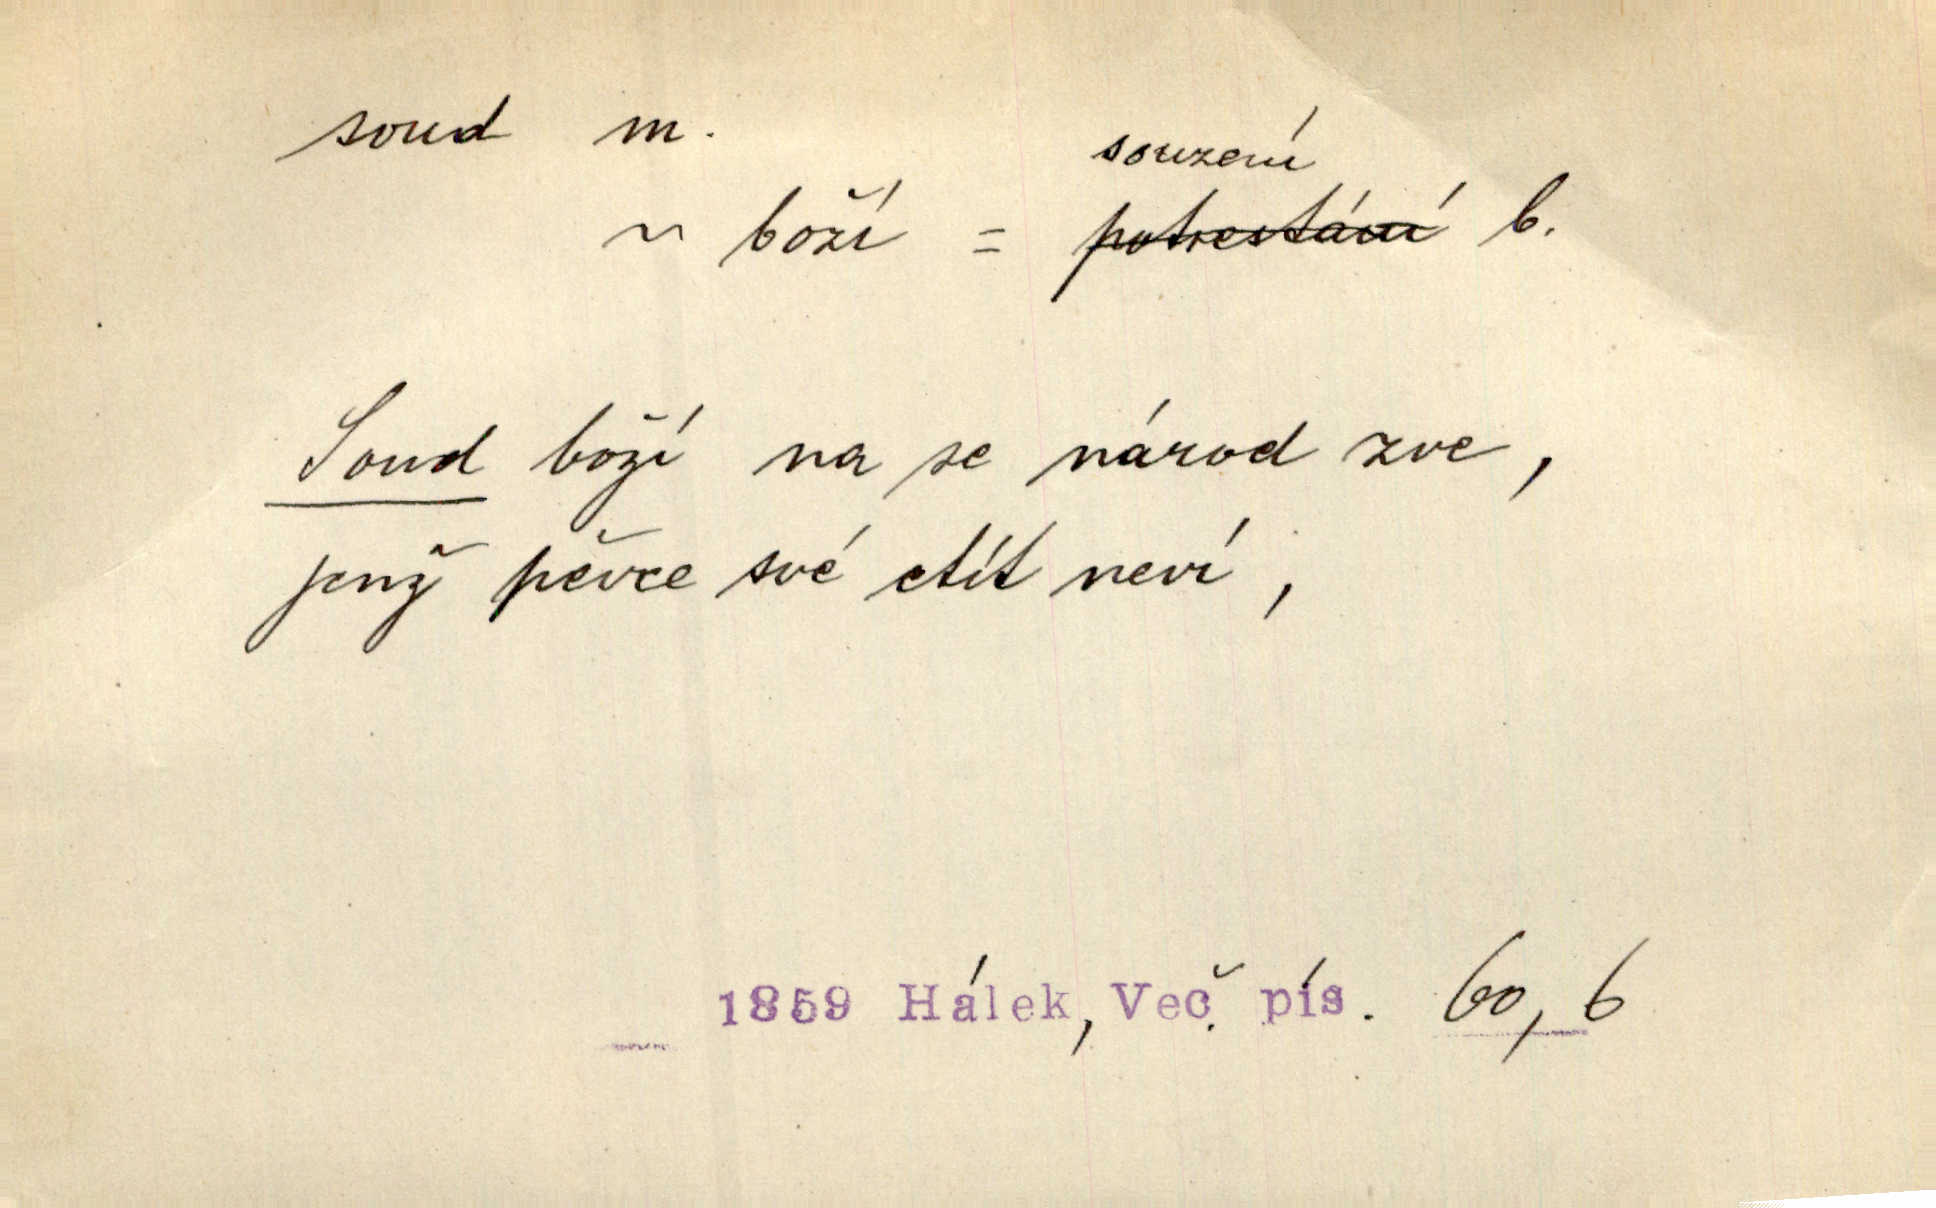 soud m.
souzení
~ boží = potrestání b.
Soud boží na se národ zve,
jenž pěvce své ctít neví,
1859 Hálek, Več. pís. 60, 6